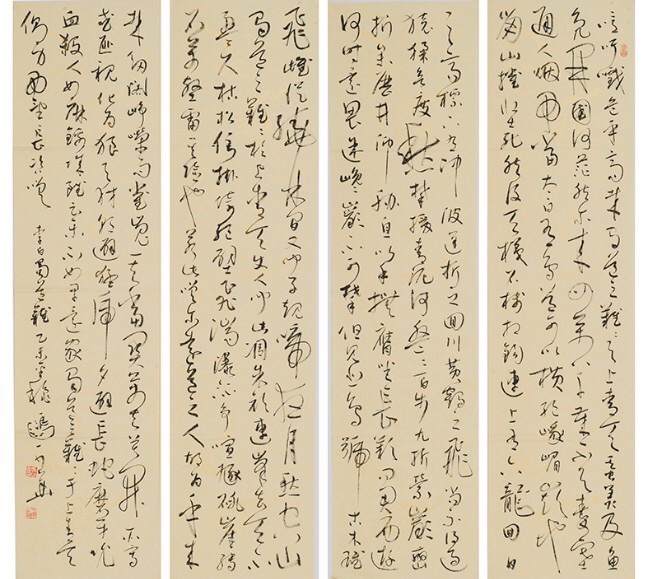 噫吁戲危乎高哉蜀道之難難於上青天蚕叢及魚
鳧開國何茫然爾來四萬八千歲不與秦塞
通人烟西當太白有鳥道可以橫絕峨嵋巔地
崩山摧壯士死然後天梯石棧相鉤連上有六龍回日
之高標下有沖波逆折之回川黃鶴之飛尚不得過
猿猱欲度愁攀援青泥何盤盤百步九折縈巖巒
捫參歷井仰脅息以手撫膺坐長歎問君西遊
何時還畏途巉巖不可攀但見悲鳥號古木雄
飛雌從繞林間又聞子規啼夜月愁空山
蜀道之難難於上青天使人聽此凋朱顏連峯去天不
盈尺枯松倒掛倚絕壁飛湍瀑流爭喧豗砯崖轉
石萬壑雷其險也若此嗟爾遠道之人胡為乎來
哉劍閣崢嶸而崔嵬一夫當關萬夫莫開所守
或匪親化為狼與豺朝避猛虎夕避長蛇磨牙吮
血殺人如麻錦城雖云樂不如早還家蜀道之難難于上青天
側身西望長咨嗟 李白蜀道難 乙未 馮